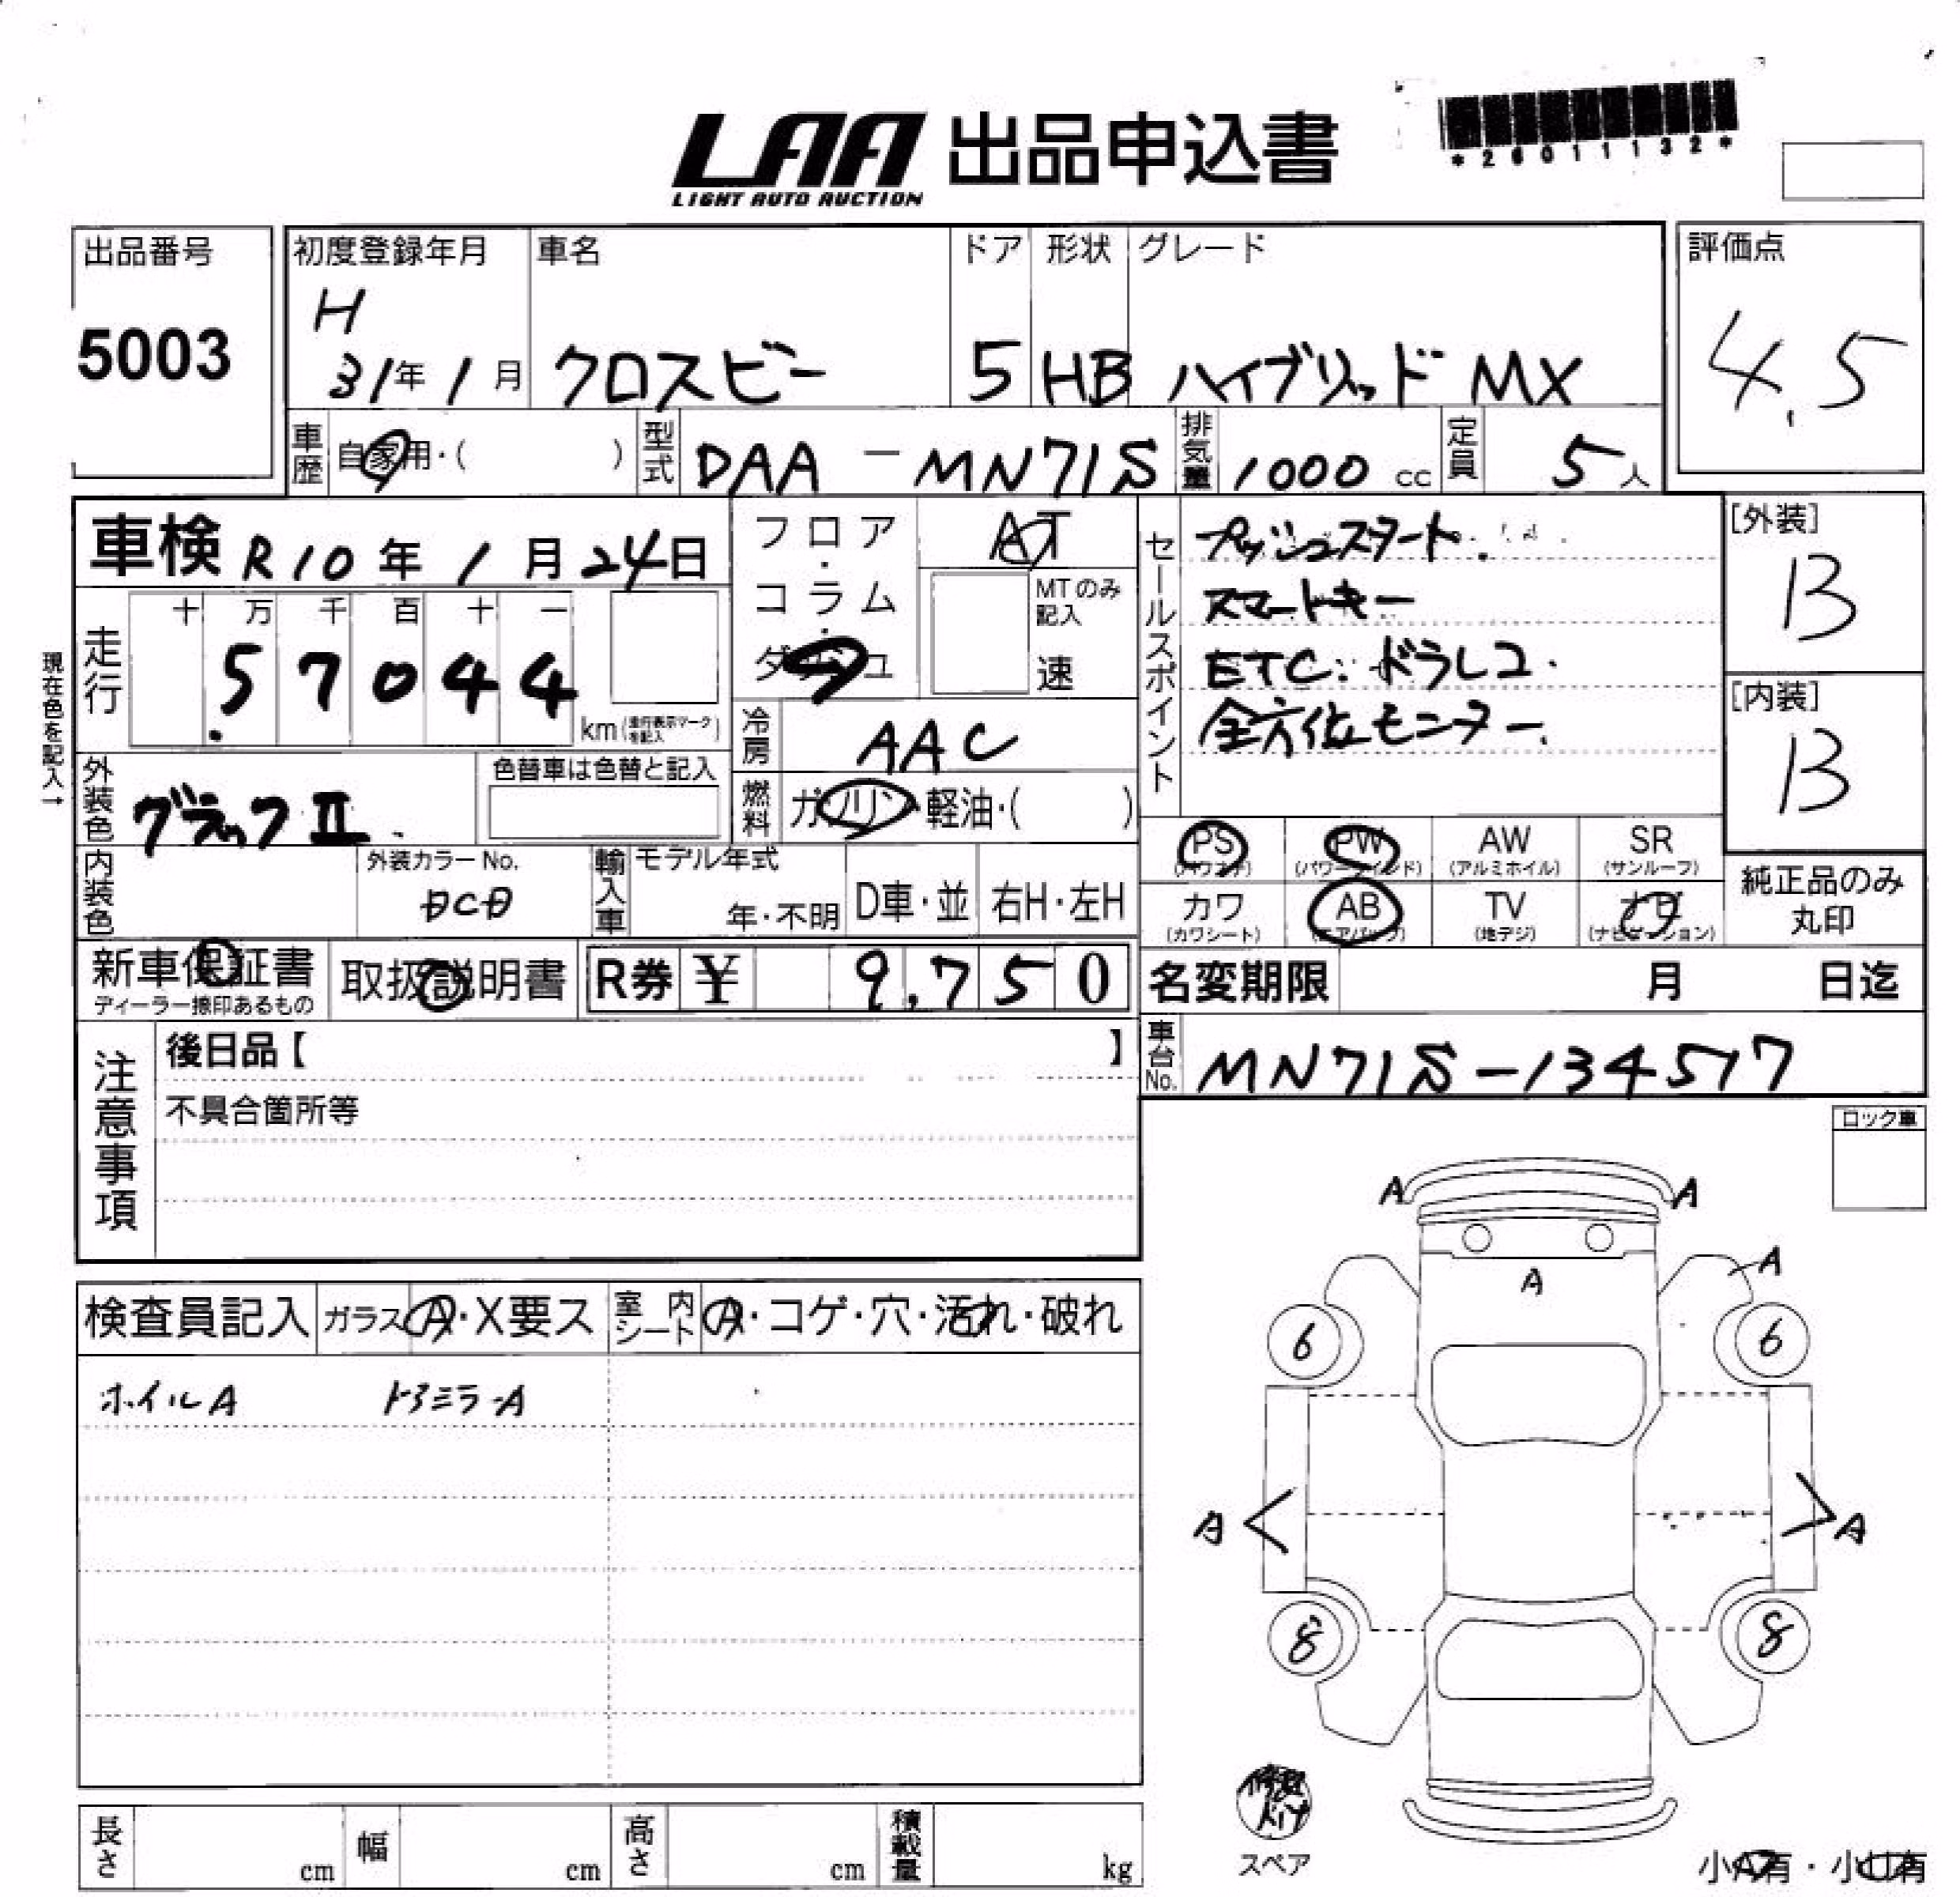 LAA 出品申込書
LIGHT AUTO AUCTION
*26011132*
出品番号
5003
初度登録年月
H
31年1月
車名
クロスビー
ドア
5
形状
HB
グレード
ハイブリッド MX
評価点
4.5
車歴 自家用・( )
型式 DAA-MN71S
排気量 1000 cc
定員 5人
車検 R10年1月24日
フロア・コラム・ダッシュ
AT
MTのみ記入
速
セールスポイント
プッシュスタート.
スマートキー
ETC. ドラレコ.
全方位モニター.
[外装]
B
[内装]
B
現在色を記入→
走行
十 万 千 百 十 一
57044
km (走行表示マークを記入)
冷房 AAC
外装色 ブラックⅡ.
色替車は色替と記入
燃料 ガソリン・軽油・( )
内装色
外装カラーNo.
輸入車
モデル年式
年・不明
D車・並
右H・左H
PS (パワステ)
PW (パワーウィンド)
AW (アルミホイル)
SR (サンルーフ)
カワ (カワシート)
AB (エアバック)
TV (地デジ)
ナビ (ナビゲーション)
純正品のみ丸印
新車保証書
ディーラー捺印あるもの
取扱説明書
R券 ¥ 9,750
名変期限 月 日迄
注意事項
後日品【 】
不具合箇所等
車台No. MN71S-134517
ロック車
検査員記入
ガラス A・X要ス
室内シート A・コゲ・穴・汚れ・破れ
ホイルA ドアミラーA
A A
A
A
6 6
A A
8 8
スペア
長さ cm
幅 cm
高さ cm
積載量 kg
小A有・小U有